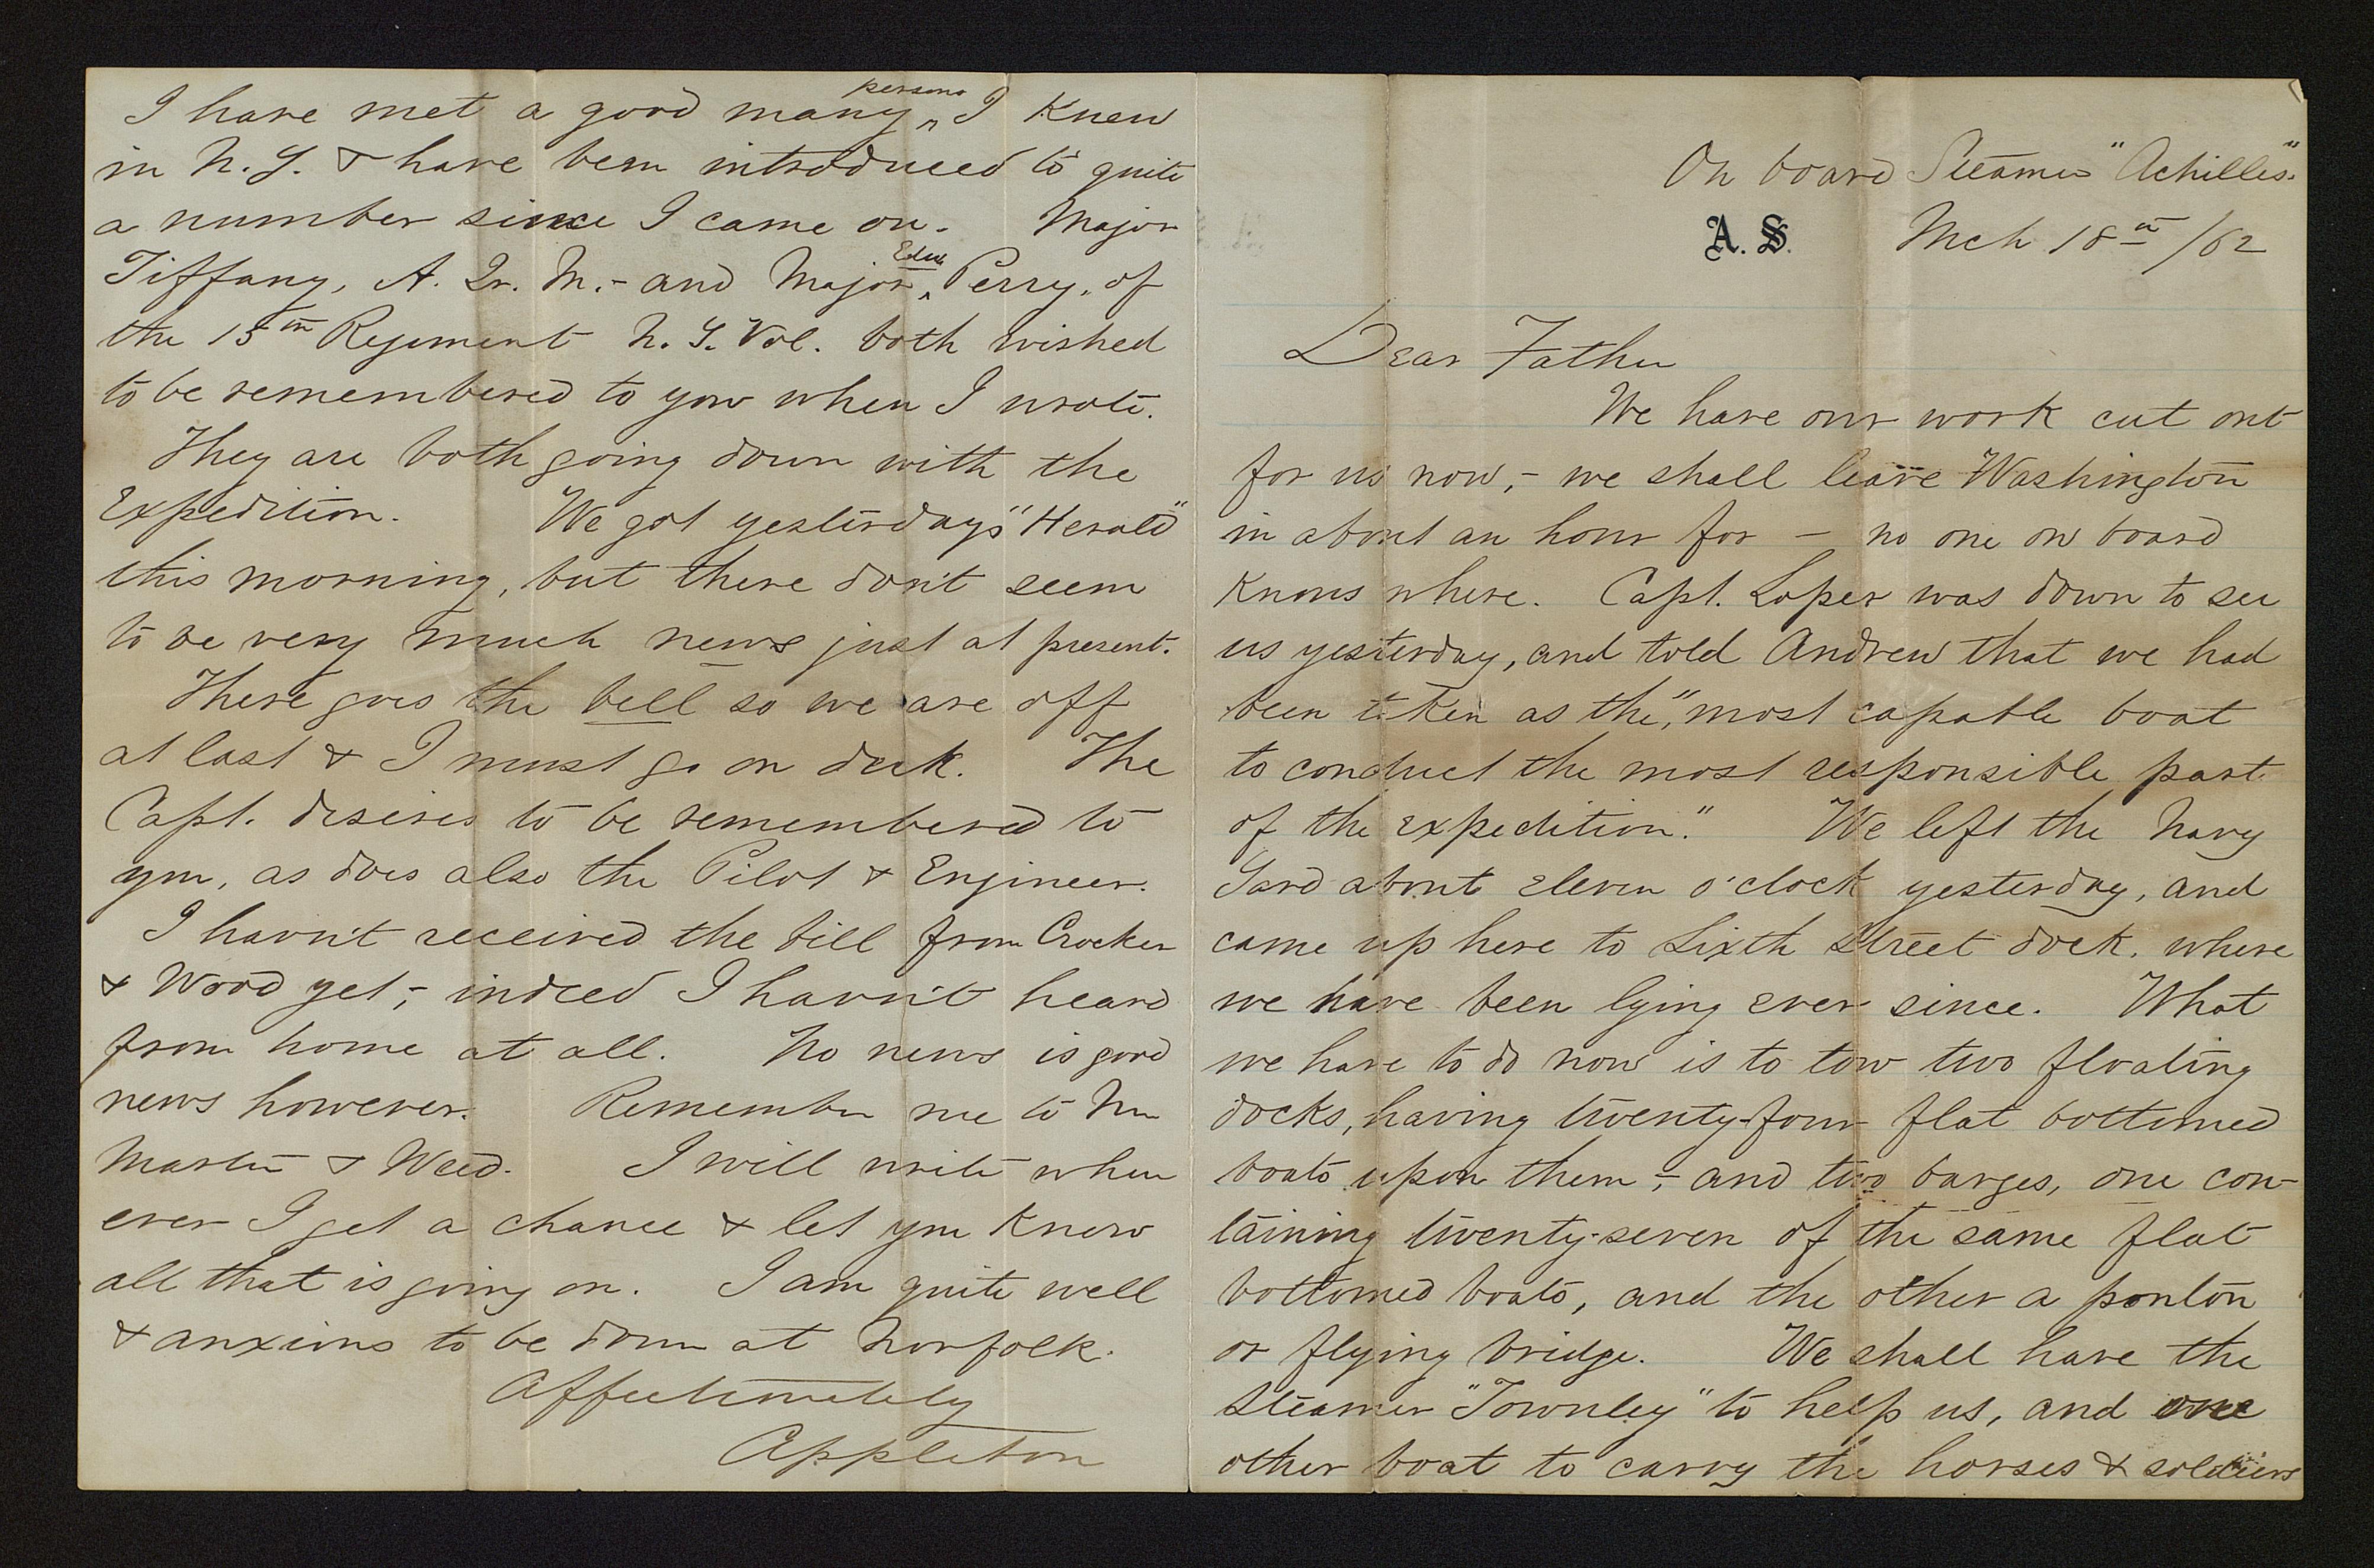 On board Steamer "Achilles".
A. S. Mch 18th /62
Dear Father
We have our work cut out
for us now, - we shall leave Washington
in about an hour for — no one on board
knows where. Capt. Loper was down to see
us yesterday, and told Andrew that we had
been taken as the, "most capable boat
to conduct the most responsible part
of the expedition." We left the Navy
Yard about eleven o'clock yesterday, and
came up here to Sixth Street dock. where
we have been lying ever since. What
we have to do now is to tow two floating
docks, having twenty-four flat bottomed
boats upon them, - and two barges, one con-
taining twenty-seven of the same flat
bottomed boats, and the other a ponton
or flying bridge. We shall have the
Steamer "Townley" to help us, and one
other boat to carry the horses & soldiers
I have met a good many persons I knew
in N. Y. & have been introduced to quite
a number since I came on. Major
Tiffany, A. Qr. M. - and Major Edw Perry, of
the 15th Regiment N. Y. Vol. both wished
to be remembered to you when I wrote.
They are both going down with the
Expedition. We got yesterdays "Herald"
this morning, but there don't seem
to be very much news just at present.
There goes the bell so we are off
at last & I must go on deck. The
Capt. desires to be remembered to
you, as does also the Pilot & Engineer.
I havn't received the bill from Crocker
& Wood yet, - indeed I havn't heard
from home at all. No news is good
news however. Remember me to
Martin & Weed. I will write when
ever I get a chance & let you know
all that is going on. I am quite well
& anxious to be down at Norfolk.
Affectionately
Appleton